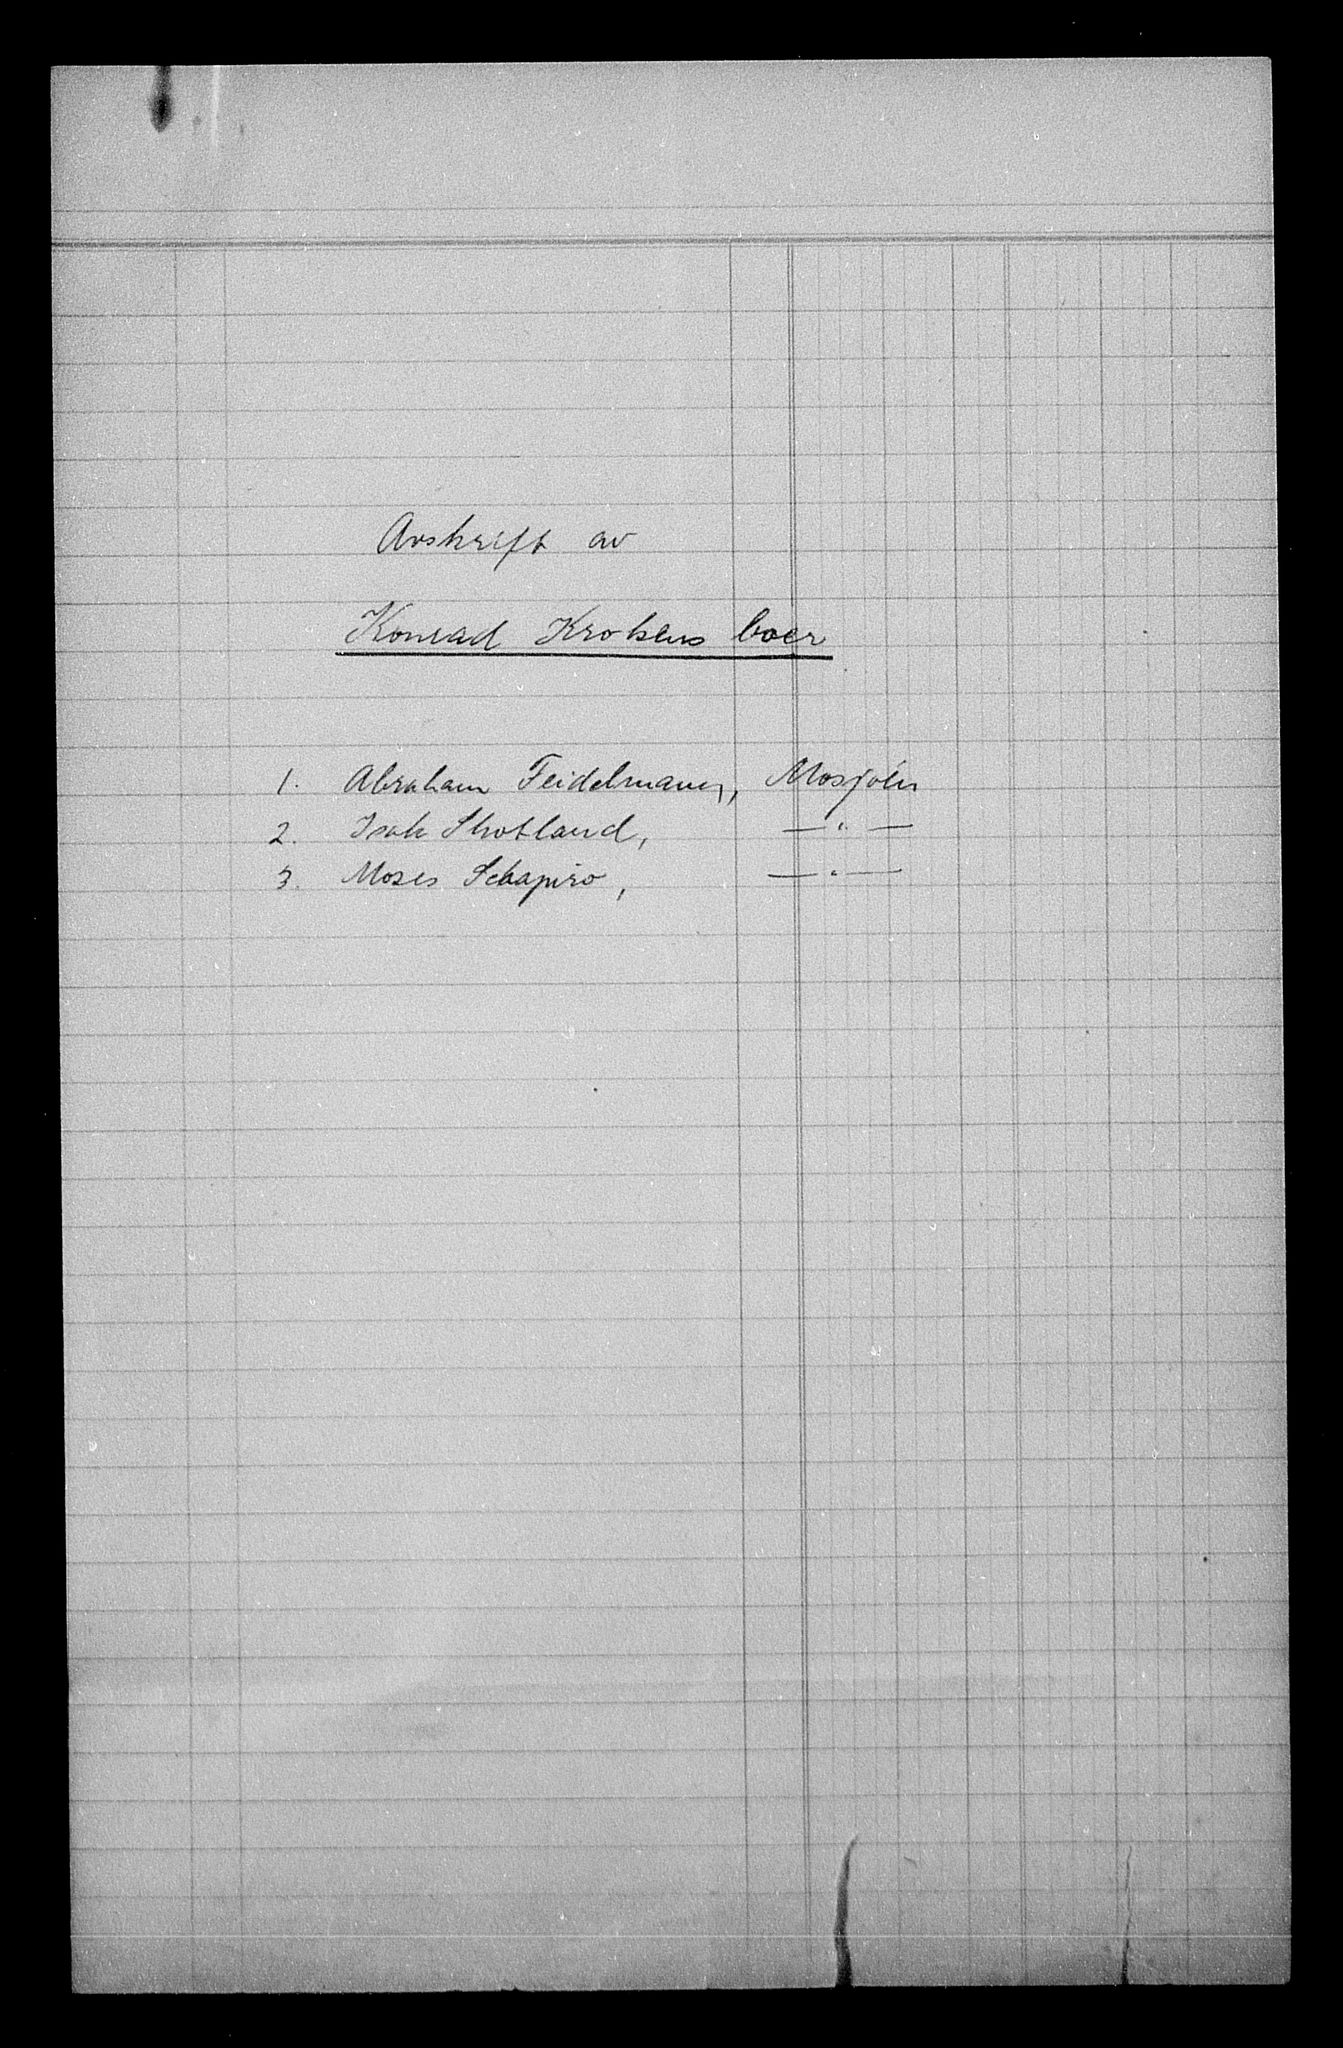 Avskrift av
Konrad Krokens boer
1. Abraham Feidelmann, Mosjøen
2. Isak Shotland, — " —
3. Moses Schapiro, — " —